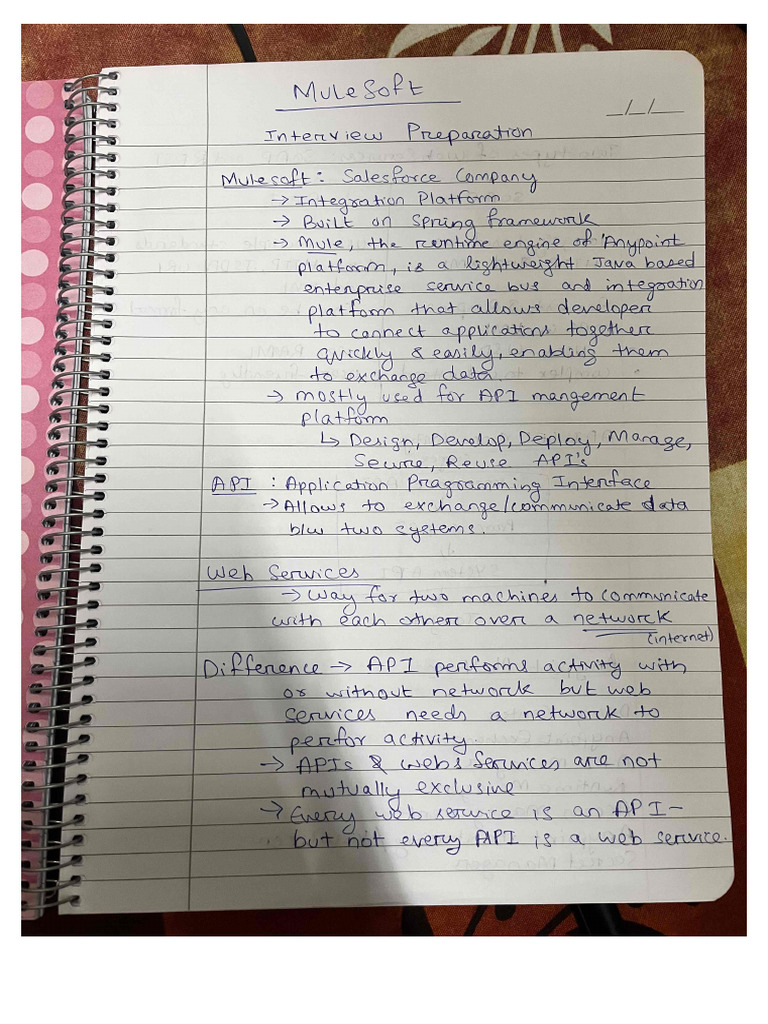 MuleSoft
_/_/__
Interview Preparation
Mulesoft: Salesforce Company
→ Integration Platform
→ Built on Spring framework
→ Mule, the runtime engine of 'Anypoint
platform, is a lightweight Java based
enterprise service bus and integration
platform that allows developer
to connect applications together
quickly & easily, enabling them
to exchange data.
→ mostly used for API mangement
platform
↳ Design, Develop, Deploy, Manage,
Secure, Reuse API's
API : Application Programming Interface
→ Allows to exchange/communicate data
b/w two systems.
Web Services
→ Way for two machines to communicate
with each other over a network
(internet)
Difference → API performs activity with
or without network but web
services needs a network to
perfor activity.
→ APIs & webs Services are not
mutually exclusive
→ Every web service is an API -
but not every API is a web service.